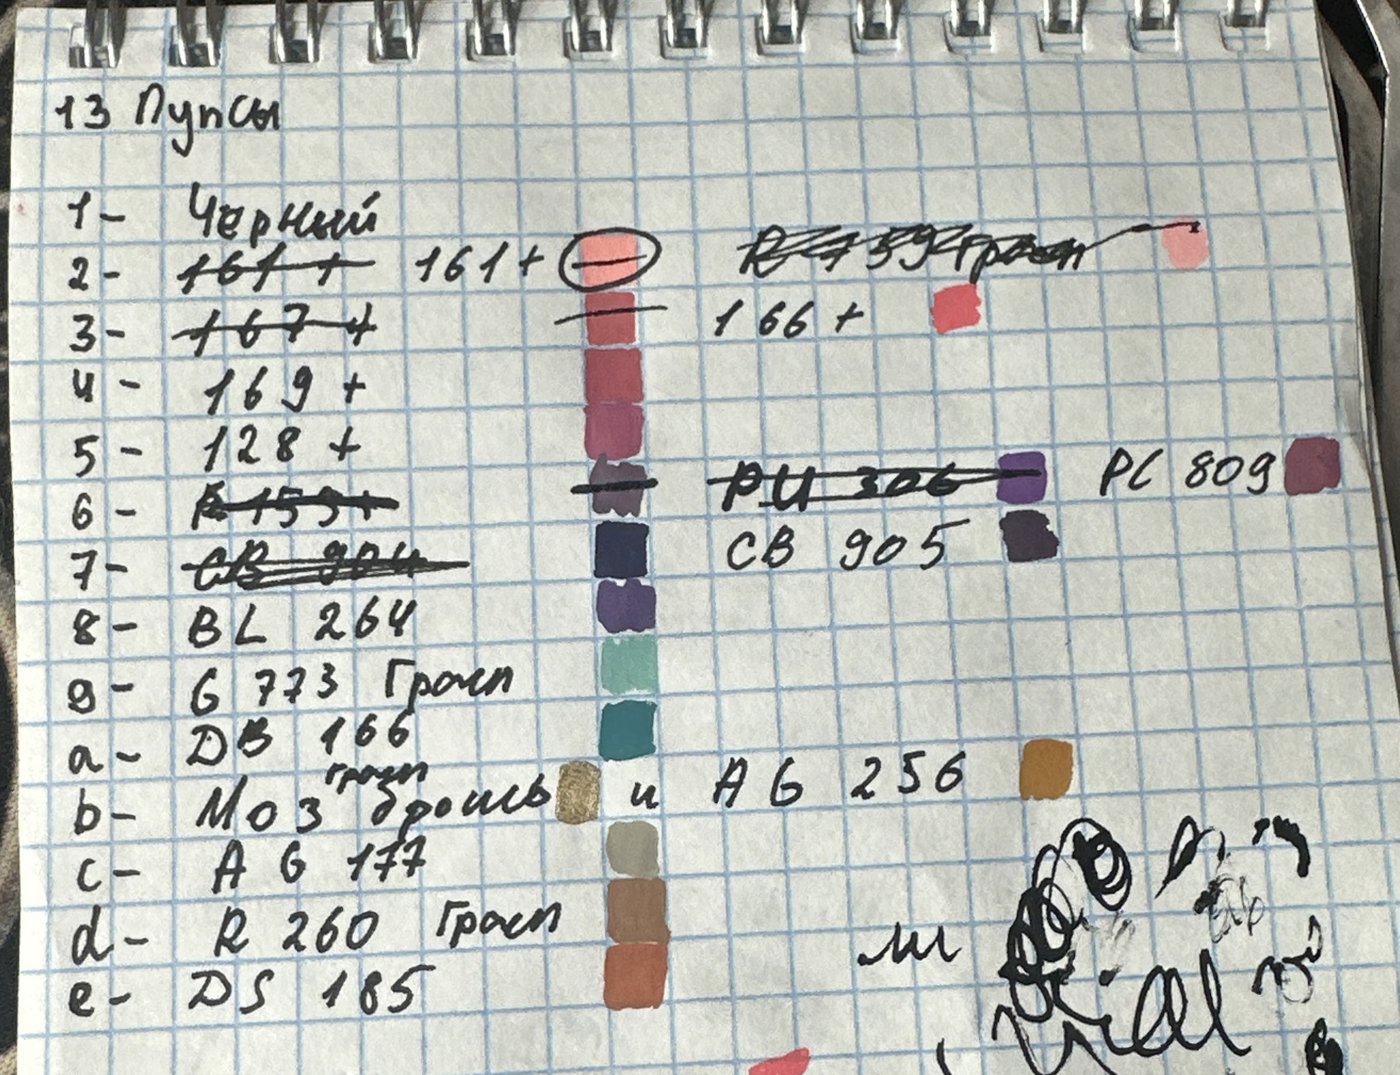 13 Пупсы
1- Черный
2- 161 + 161+
3- 167 + 166 +
4 - 169 +
5 - 128 +
6 - PU 306 PL 809
7- CB 904 CB 905
8- BL 264
9- G 773 Грасп
a- DB 166
b- Моз грасп брошь и AG 256
c- AG 177
d- R 260 Грасп
e- DS 185